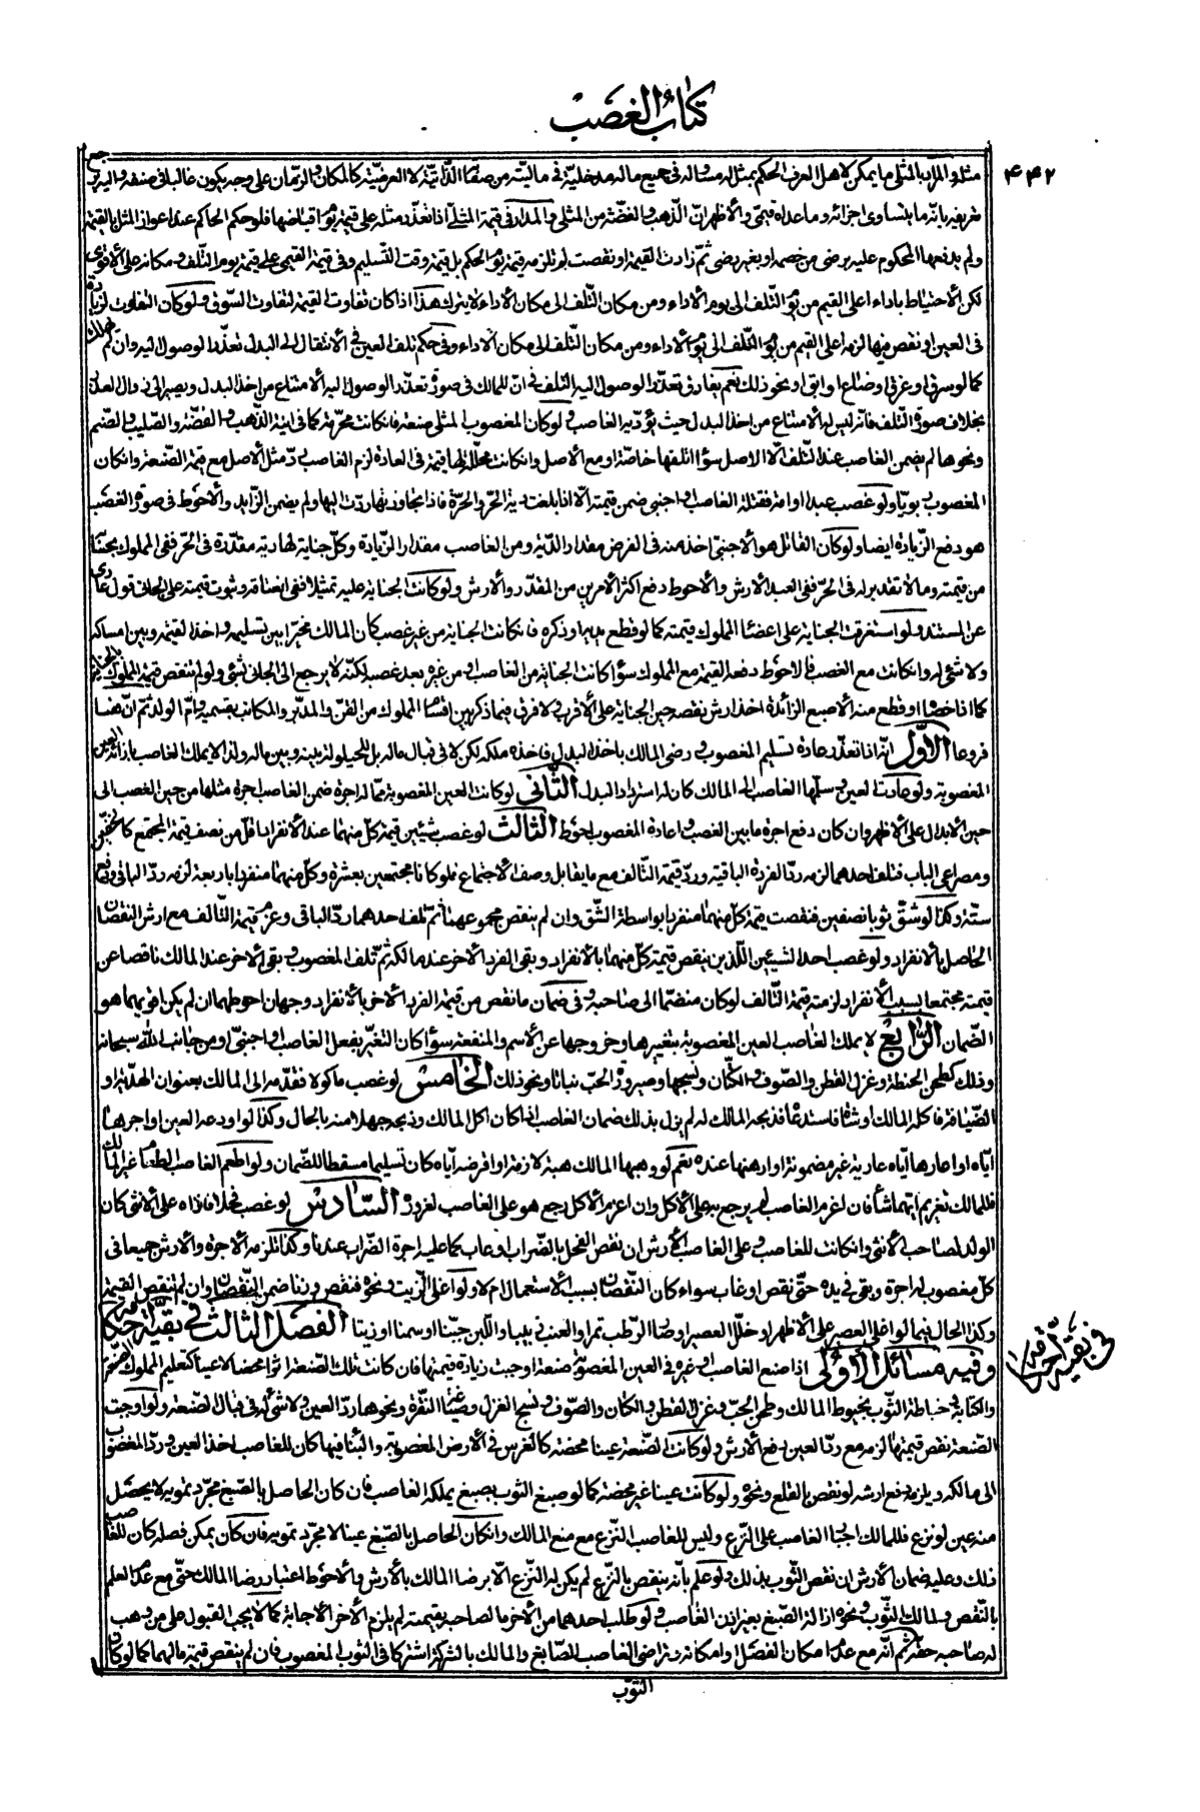 كتاب الغصب
٤٤٢
مثله والمراد بالمثلى ما يمكن لاهل العرف الحكم بمثل له مساو له فى جميع ماله مدخلية فى ماليته من صفاته الذاتية لا العرضية كالمكان والزمان على وجه يكون غالبا فى صنفه واليه يرجع
تعريفه بانه ما يتساوى اجزائه وما عداه قيمى والاظهر ان الذهب والفضة من المثلى والمدار فى قيمة المثلى اذا تعذر مثله على قيمة يوم اقباضها فلو حكم الحاكم عند اعواز المثل بالقيمة
ولم يدفعها المحكوم عليه برضى من خصمه او بغير رضى ثم زادت القيمة او نقصت لم تلزمه قيمة يوم الحكم بل قيمة وقت التسليم وفى قيمة القيمى على قيمة يوم التلف ومكانه على الاقوى
لكن الاحتياط باداء اعلى القيم من يوم التلف الى يوم الاداء ومن مكان التلف الى مكان الاداء لا يترك هذا اذا كان تفاوت القيمة لتفاوت السوق ولو كان التفاوت لزيادة
فى العين او نقص فيها لزمه اعلى القيم من يوم التلف الى يوم الاداء ومن مكان التلف الى مكان الاداء وفى حكم تلف العين فى الانتقال الى البدل تعذر الوصول اليه وان لم يهلك
كما لو سرق او غرق او ضاع او ابق او نحو ذلك نعم يفارق تعذر الوصول اليه التلف فى ان للمالك فى صورة تعذر الوصول اليه الامتناع من اخذ البدل ويصبر الى زوال العذر
بخلاف صورة التلف فانه ليس له الامتناع من اخذ البدل حيث يؤديه الغاصب ولو كان المغصوب المثلى صنعة فان كانت محرمة كما فى انية الذهب والفضة والصليب والصنم
ونحوها لم يضمن الغاصب عند التلف الا الاصل سواء اتلفها خاصة او مع الاصل وان كانت محللة لها قيمة فى العادة لزم الغاصب رد مثل الاصل مع قيمة الصنعة وان كان
المغصوب ربويا ولو غصب عبدا او امة فقتله الغاصب او اجنبى ضمن قيمته الا اذا بلغت دية الحر والحرة فاذا تجاوزتها ردت اليها ولم يضمن الزايد والاحوط فى صورة الغصب
هو دفع الزيادة ايضا ولو كان القاتل هو الاجنبى اخذ منه فى الفرض مقدار الدية ومن الغاصب مقدار الزيادة وكل جناية لها دية مقدرة فى الحر ففى المملوك بحسابها
من قيمته وما لا تقدير له فى الحر ففى العبد الارش والاحوط دفع اكثر الامرين من المقدر والارش ولو كانت الجناية عليه تمثيلا ففى انعتاقه وثبوت قيمته على الجانى قول عارى
عن المستند ولو استغرقت الجناية على اعضاء المملوك قيمته كما لو قطع يديه او ذكره فان كانت الجناية من غير غصب كان المالك مخيرا بين تسليمه واخذ القيمة وبين امساكه
ولا شئ له وان كانت مع الغصب فالاحوط دفعه القيمة مع المملوك سواء كانت الجناية من الغاصب او من غيره بعد غصبه لكنه لا يرجع الى الجانى بشئ ولو لم تنقص قيمة المملوك بالجناية
كما اذا خصاه او قطع منه الاصبع الزائدة اخذ ارش نقصه حين الجناية على الاقرب ولا فرق فيما ذكر بين اقسام المملوك من القن والمدبر والمكاتب بقسميه وام الولد ثم ان هنا
فروعا الاول انه اذا تعذر عادة تسليم المغصوب ورضى المالك باخذ البدل فاخذه ملكه لكن لا فى قبال ماله بل للحيلولة بينه وبين ماله ولذا لا يملك الغاصب بازائه العين
المغصوبة ولو عادت العين وسلمها الغاصب الى المالك كان له استرداد البدل الثانى لو كانت العين المغصوبة مما له اجرة ضمن الغاصب اجرة مثلها من حين الغصب الى
حين الابدال على الاظهر وان كان دفع اجرة ما بين الغصب واعادة المغصوب احوط الثالث لو غصب شيئين قيمة كل منهما عند الانفراد اقل من نصف قيمة المجتمع كالخفين
ومصراعى الباب فتلف احدهما لزمه رد الفردة الباقية ورد قيمة التالف مع ما يقابل وصف الاجتماع فلو كانا مجتمعين بعشرة وكل منهما منفردا باربعة لزمه رد الباقى ودفع
ستة وكذا لو شق ثوبا نصفين فنقصت قيمة كل منهما منفردا بواسطة الشق وان لم ينقص مجموعهما ثم تلف احدهما رد الباقى وغرم قيمة التالف مع ارش النقصان
الحاصل بالانفراد ولو غصب احد الشيئين اللذين ينقص قيمة كل منهما بالانفراد وبقى الفرد الاخر عند مالكه ثم تلف المغصوب وبقى الاخر عند المالك ناقصا عن
قيمته مجتمعا بسبب الانفراد لزمته قيمة التالف لو كان منضما الى صاحبه وفى ضمان ما نقص من قيمة الفرد الاخر بالانفراد وجهان احوطهما ان لم يكن اقويهما هو
الضمان الرابع لا يملك الغاصب العين المغصوبة بتغييرها وخروجها عن الاسم والمنفعة سواء كان التغير بفعل الغاصب او اجنبى او من جانب الله سبحانه
وذلك كطحن الحنطة وغزل القطن والصوف والكتان ونسجها وصيرورة الحب نباتا ونحو ذلك الخامس لو غصب ماكولا فقدمه الى المالك بعنوان الهدية او
الضيافة فاكله المالك او شاة فاستدعاه فذبحه المالك له لم يزل بذلك ضمان الغاصب اذا كان اكل المالك وذبحه جهلا منه بالحال وكذا لو اودعه العين او اجرها
اياه او اعارها اياه عارية غير مضمونة او ارهنها عنده نعم لو وهبها المالك هبة لازمة او اقرضه اياه كان تسليما مسقطا للضمان ولو اطعم الغاصب الطعام غير المالك
فللمالك تغريم ايهما شاء فان اغرم الغاصب لم يرجع به على الاكل وان اغرم الاكل رجع هو على الغاصب لغروره السادس لو غصب فحلا فانزاه على الانثى كان
الولد لصاحب الانثى وان كانت للغاصب وعلى الغاصب الارش ان نقص الفحل بالضراب او عاب كما عليه اجرة الضراب عندنا وكذا تلزمه الاجرة والارش جميعا فى
كل مغصوب له اجرة وبقى فى يده حتى نقص او عاب سواء كان النقصان بسبب الاستعمال ام لا ولو اغلى الزيت ونحوه فنقص وزنا ضمن النقصان وان لم تنقص القيمة
وكذا الحال فيما لو اغلى العصير على الاظهر او خلل العصير او صار الرطب تمرا والعنب زبيبا واللبن جبنا او سمنا او زيتا الفصل الثالث فى بقية احكامه
وفيه مسائل الاولى اذا صنع الغاصب او غيره فى العين المغصوبة صنعة اوجبت زيادة قيمتها فان كانت تلك الصنعة اثرا محضا لا عينا كتعليم المملوك الصنعة
والكتابة وخياطة الثوب بخيوط المالك وطحن الحب وغزل القطن والكتان والصوف ونسج الغزل وصياغة النقرة ونحوها رد العين ولا شئ له فى قبال الصنعة ولو اوجبت
الصنعة نقص قيمتها لزمه مع رد العين دفع الارش ولو كانت الصنعة عينا محضة كالغرس فى الارض المغصوبة والبناء فيها كان للغاصب اخذ العين ورد المغصوب
الى مالكه ويلزمه دفع ارشه لو نقص بالقلع ونحوه ولو كانت عينا غير محضة كما لو صبغ الثوب بصبغ يملكه الغاصب فان كان الحاصل بالصبغ مجرد تمويه لا يحصل
منه عين لو نزع فللمالك اجبار الغاصب على النزع وليس للغاصب النزع مع منع المالك وان كان الحاصل بالصبغ عينا لا مجرد تمويه فان كان يمكن فصله كان للغاصب
ذلك وعليه ضمان الارش ان نقص الثوب بذلك ولو علم بانه ينقص بالنزع لم يكن له النزع الا برضا المالك بالارش والاحوط اعتبار رضا المالك حتى مع عدم العلم
بالنقص ولمالك الثوب ونحوه ازالة الصبغ بغير اذن الغاصب ولو طلب احدهما من الاخر مال صاحبه بقيمته لم يلزم الاخر الاجابة كما لا يجب القبول على من وهب
له صاحبه حقه ثم انه مع عدم امكان الفصل او امكانه وتراضى الغاصب للصابغ والمالك بالشركة اشتركا فى الثوب المغصوب فان لم ينقص قيمة مالهما كما لو كان
الثوب
فى بقية احكامه